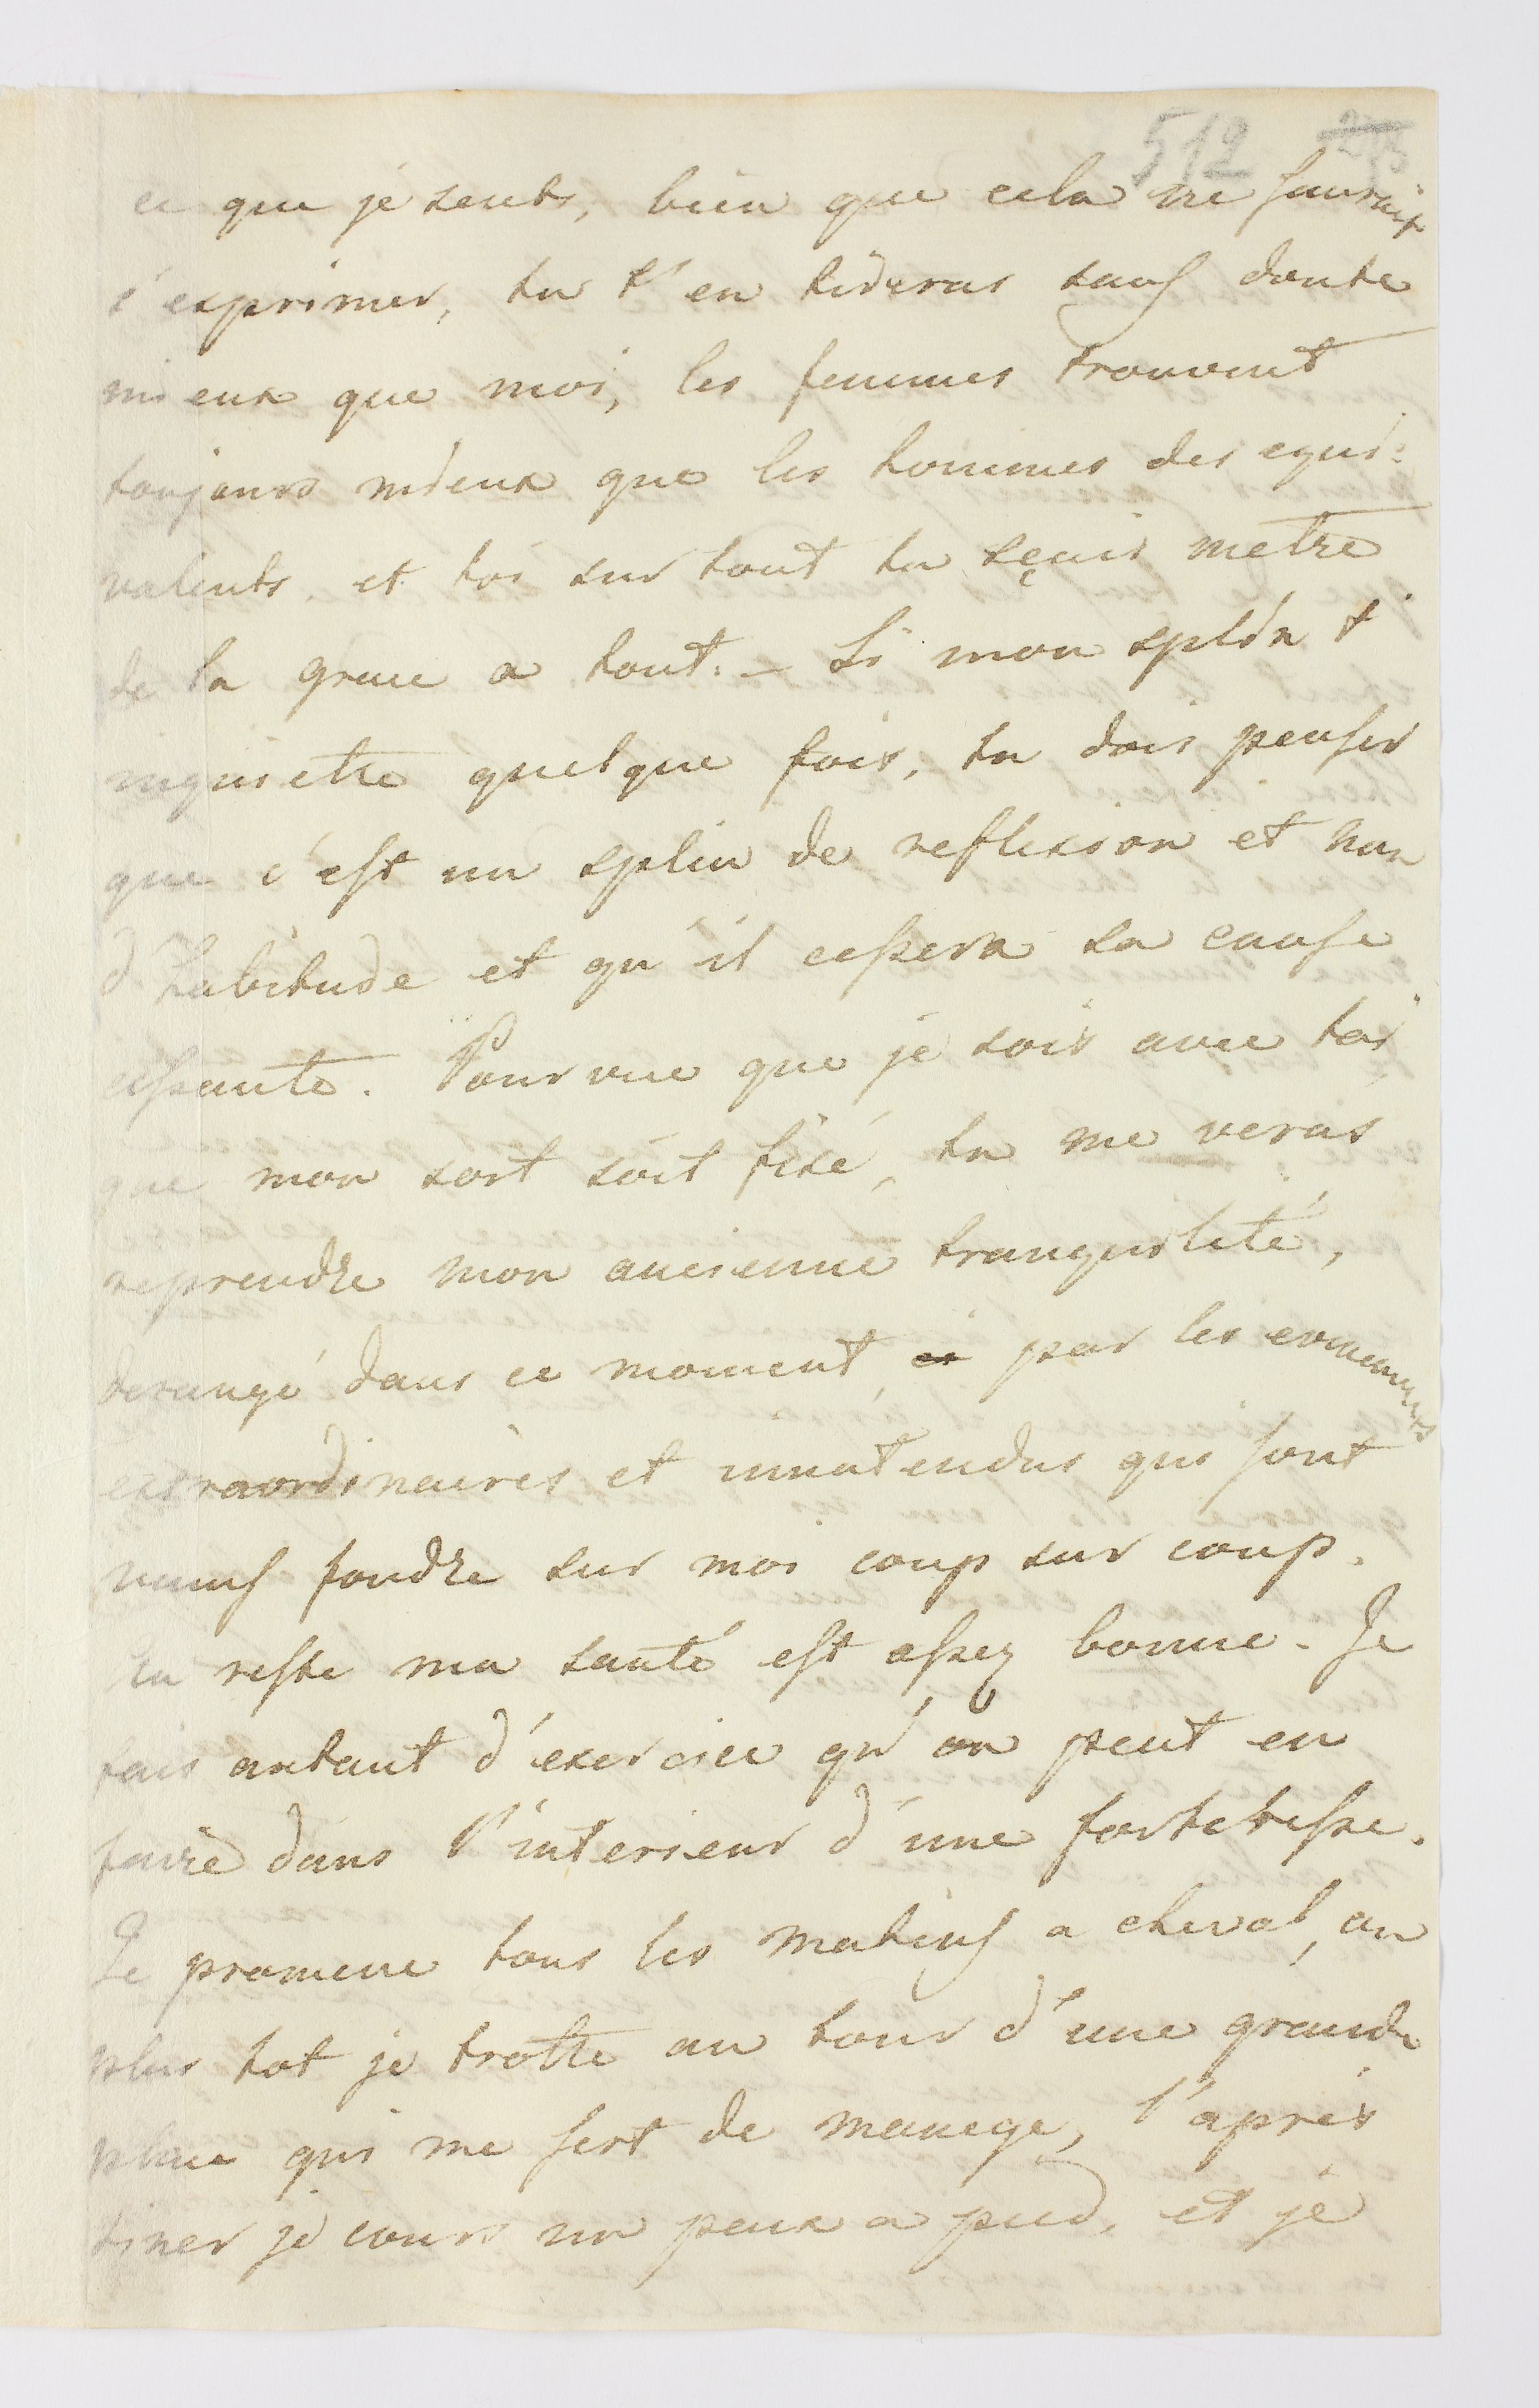 512
ce que je sents, bien que cela ne sauroit
s'exprimer, tu t'en tireras sans doute
mieux que moi, les femmes trouvent
toujours mieux que les hommes des equi:
valents. et toi sur tout tu sçais metre
de la grace a tout. - Si mon splin t'
inquiette quelque fois, tu dois penser
que c'est un splin de reflexion et non
d'habitude et qu'il cessera sa cause
cessante. Pourvue que je sois avec toi,
que mon sort soit fixé, tu me veras
reprendre mon ancienne tranquilité,
derangé dans ce moment, par les evenements
extraordinaires et innatendus qui sont
venus fondre sur moi coup sur coup.
Du reste ma santé est assez bonne. Je
fais autant d'exercice qu'on peut en
faire dans l'interieur d'une forteresse.
Je promene tous les matins a cheval, ou
plus tot je trotte au tour d'une grande
place qui me sert de manege, l'après
diner je cours un peux a pied, et je